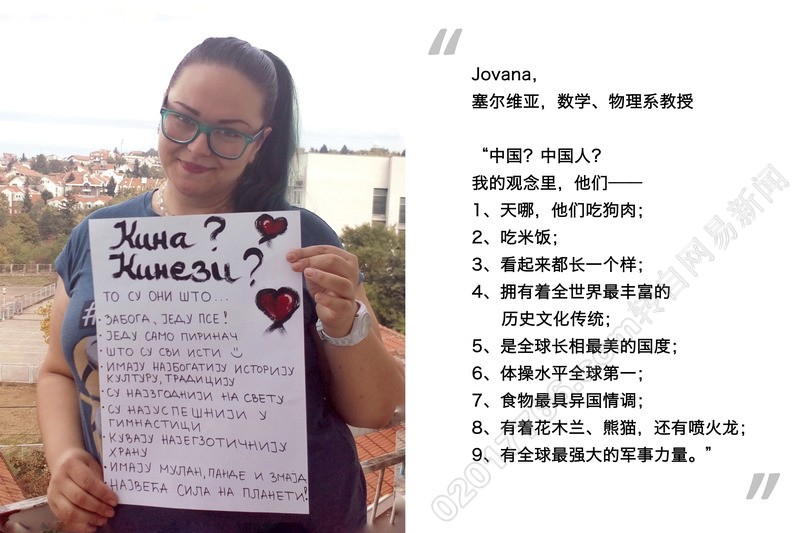 Кина?
Кинези?
ТО СУ ОНИ ШТО...
• ЗАБОГА, ЈЕДУ ПСЕ!
• ЈЕДУ САМО ПИРИНАЧ
• ШТО СУ СВИ ИСТИ
• ИМАЈУ НАЈБОГАТИЈУ ИСТОРИЈУ
КУЛТУРУ, ТРАДИЦИЈУ
• СУ НАЈЗГОДНИЈИ НА СВЕТУ
• СУ НАЈУСПЕШНИЈИ У
ГИМНАСТИЦИ
• КУВАЈУ НАЈЕГЗОТИЧНИЈУ
ХРАНУ
• ИМАЈУ МУЛАН, ПАНДЕ И ЗМАЈА
• НАЈВЕЋА СИЛА НА ПЛАНЕТИ!
#
“
Jovana，
塞尔维亚，数学、物理系教授
“中国？中国人？
我的观念里，他们——
1、天哪，他们吃狗肉；
2、吃米饭；
3、看起来都长一个样；
4、拥有着全世界最丰富的
历史文化传统；
5、是全球长相最美的国度；
6、体操水平全球第一；
7、食物最具异国情调；
8、有着花木兰、熊猫，还有喷火龙；
9、有全球最强大的军事力量。”
”